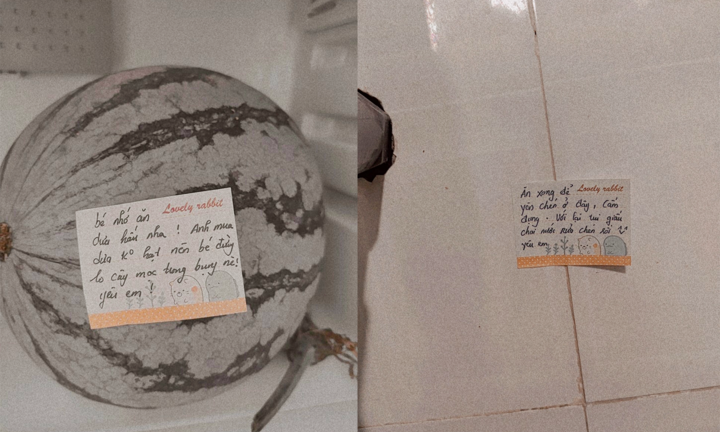 Lovely rabbit
bé nhớ ăn
dưa hấu nha ! Anh mua
dưa K° hạt nên bé đừng
lo cây mọc trong bụng nè!
yêu em !
Lovely rabbit
Ăn xong để
yên chén ở đây, Cấm
đụng . Với lại tui giấu
chai nước rửa chén rồi
yêu em